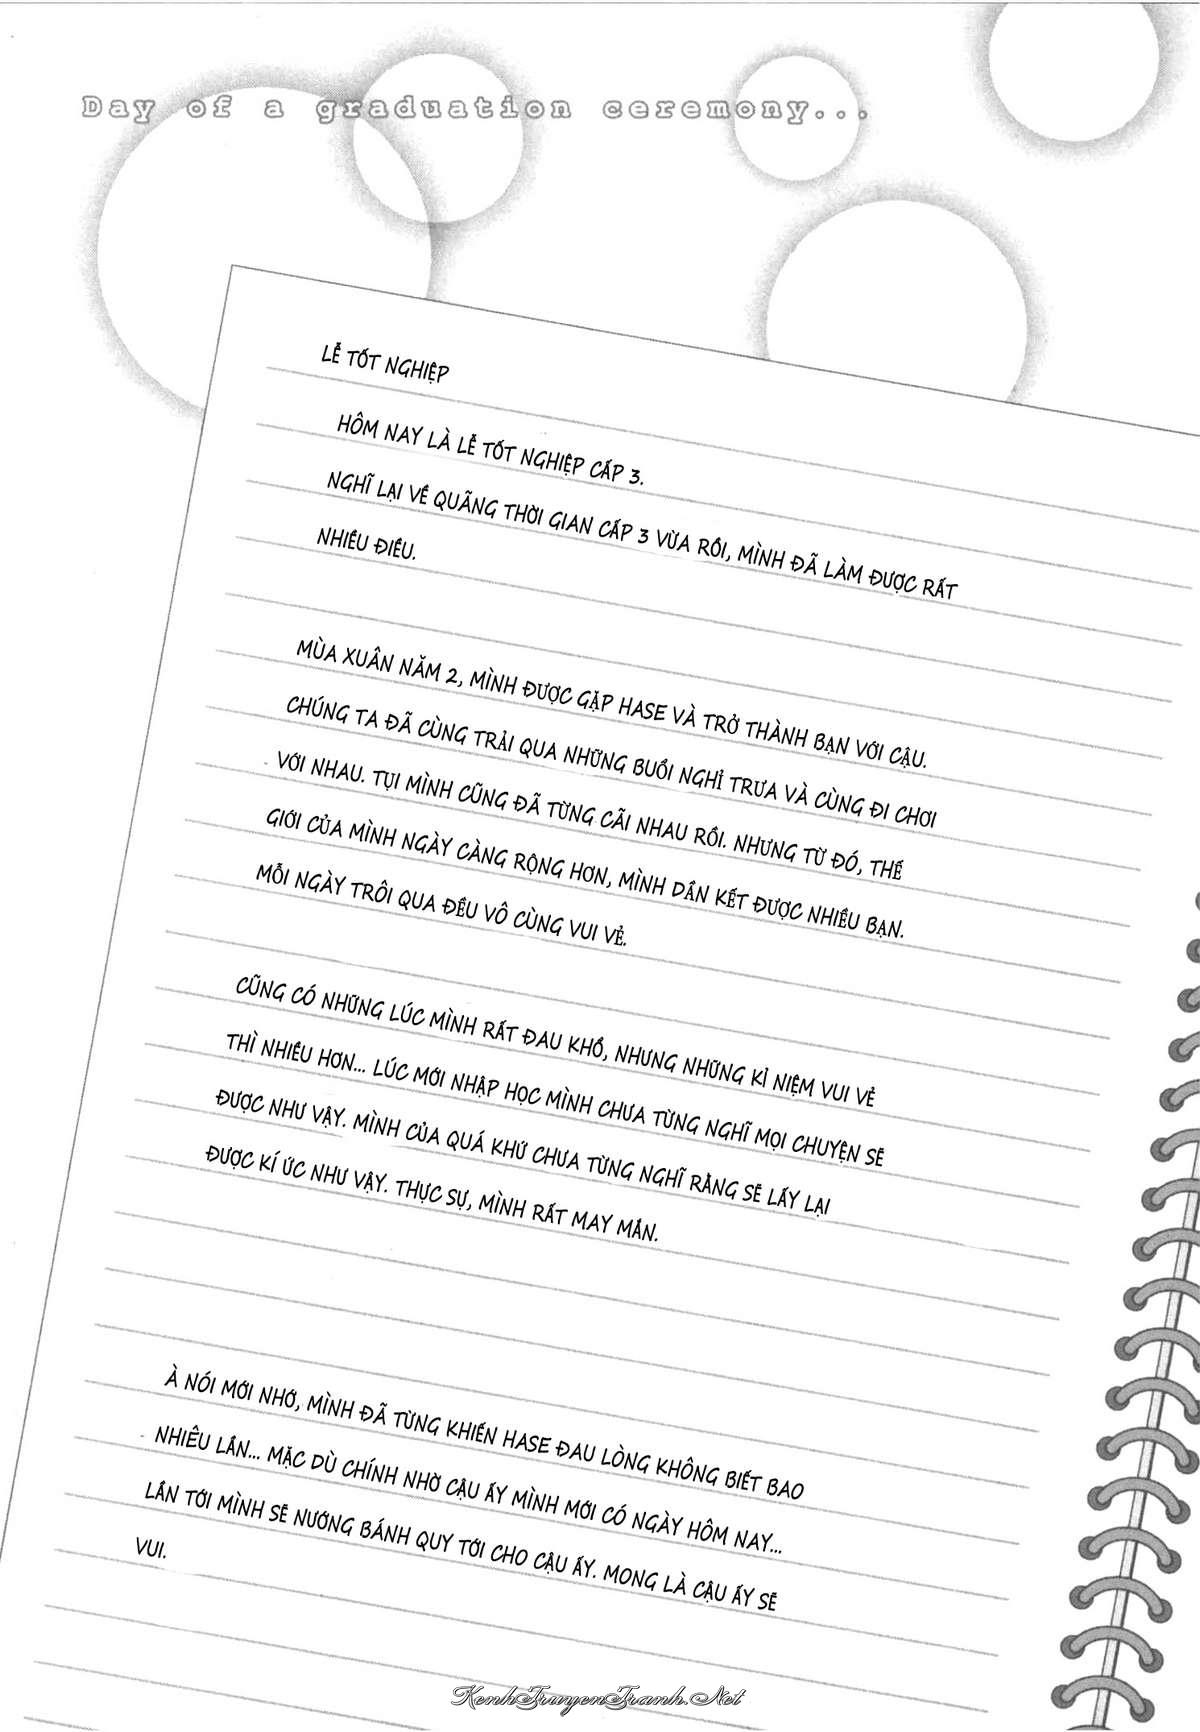 Day of a graduation ceremony...
LỄ TỐT NGHIỆP
HÔM NAY LÀ LỄ TỐT NGHIỆP CẤP 3.
NGHĨ LẠI VỀ QUÃNG THỜI GIAN CẤP 3 VỪA RỒI, MÌNH ĐÃ LÀM ĐƯỢC RẤT
NHIỀU ĐIỀU.
MÙA XUÂN NĂM 2, MÌNH ĐƯỢC GẶP HASE VÀ TRỞ THÀNH BẠN VỚI CẬU.
CHÚNG TA ĐÃ CÙNG TRẢI QUA NHỮNG BUỔI NGHỈ TRƯA VÀ CÙNG ĐI CHƠI
VỚI NHAU. TỤI MÌNH CŨNG ĐÃ TỪNG CÃI NHAU RỒI. NHƯNG TỪ ĐÓ, THẾ
GIỚI CỦA MÌNH NGÀY CÀNG RỘNG HƠN, MÌNH DẦN KẾT ĐƯỢC NHIỀU BẠN.
MỖI NGÀY TRÔI QUA ĐỀU VÔ CÙNG VUI VẺ.
CŨNG CÓ NHỮNG LÚC MÌNH RẤT ĐAU KHỔ, NHƯNG NHỮNG KỈ NIỆM VUI VẺ
THÌ NHIỀU HƠN... LÚC MỚI NHẬP HỌC MÌNH CHƯA TỪNG NGHĨ MỌI CHUYỆN SẼ
ĐƯỢC NHƯ VẬY. MÌNH CỦA QUÁ KHỨ CHƯA TỪNG NGHĨ RẰNG SẼ LẤY LẠI
ĐƯỢC KÍ ỨC NHƯ VẬY. THỰC SỰ, MÌNH RẤT MAY MẮN.
À NÓI MỚI NHỚ, MÌNH ĐÃ TỪNG KHIẾN HASE ĐAU LÒNG KHÔNG BIẾT BAO
NHIÊU LẦN... MẶC DÙ CHÍNH NHỜ CẬU ẤY MÌNH MỚI CÓ NGÀY HÔM NAY...
LẦN TỚI MÌNH SẼ NƯỚNG BÁNH QUY TỚI CHO CẬU ẤY. MONG LÀ CẬU ẤY SẼ
VUI.
KenhTruyenTranh.Net